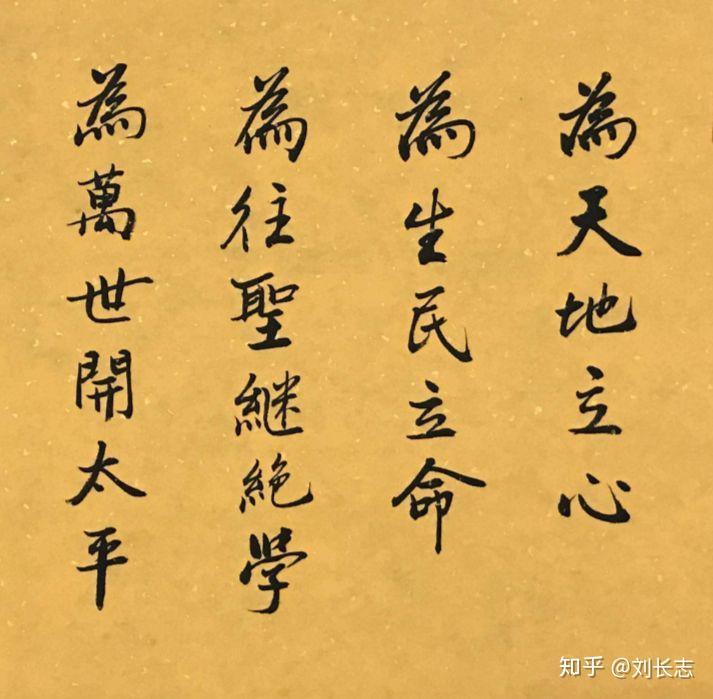 為天地立心
為生民立命
為往聖継絶學
為萬世開太平
知乎 @刘长志